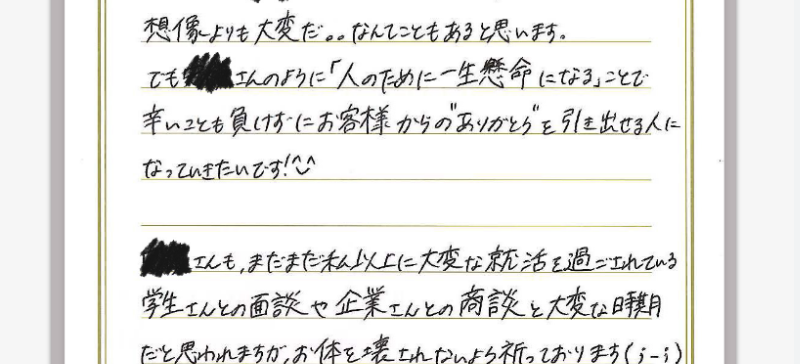 想像よりも大変だ。。なんてこともあると思います。
でも さんのように「人のために一生懸命になる」ことで
辛いことも負けずにお客様からの"ありがとう"を引き出せる人に
なっていきたいです!^^
さんも、まだまだ私以上に大変な就活を過ごされている
学生さんとの面談や企業さんとの商談と大変な時期
だと思われますが、お体を壊されないよう祈っております(;-;)